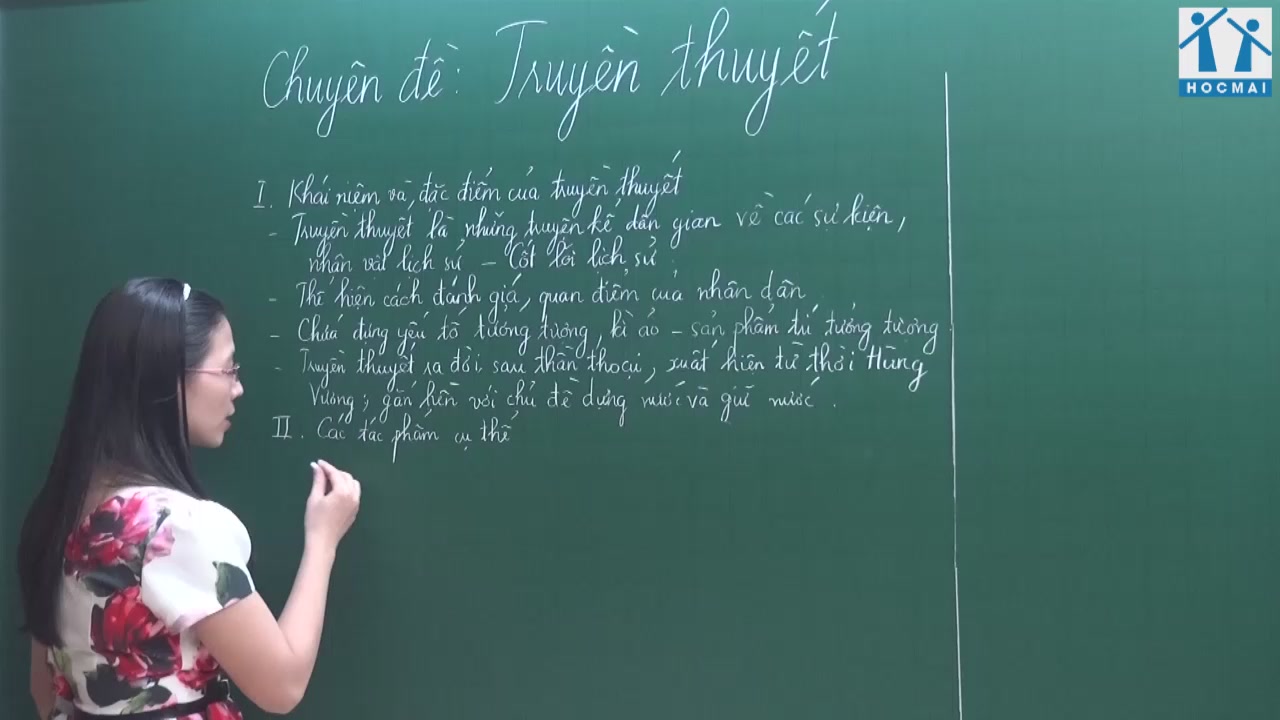 HOCMAI
Chuyên đề: Truyền thuyết
I. Khái niệm và đặc điểm của truyền thuyết
- Truyền thuyết là những truyện kể dân gian về các sự kiện,
nhân vật lịch sử - Cốt lõi lịch sử.
- Thể hiện cách đánh giá, quan điểm của nhân dân
- Chứa đựng yếu tố tưởng tượng, kì ảo - sản phẩm trí tưởng tượng
- Truyền thuyết ra đời sau thần thoại, xuất hiện từ thời Hùng
Vương; gắn liền với chủ đề dựng nước và giữ nước.
II. Các tác phẩm cụ thể